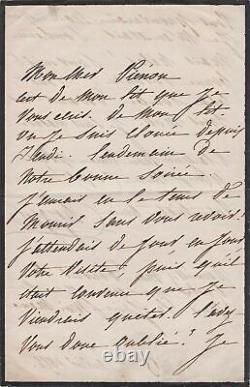 Mon cher
c'est de mon lit que je
vous écris. De mon lit
où je suis clouée depuis
lendemain de
notre bonne soirée.
le temps de
mourir sans vous revoir.
j'attendais de jour en jour
votre visite, puis qu'il
était convenu que je
viendrais
vous donc oublié? je